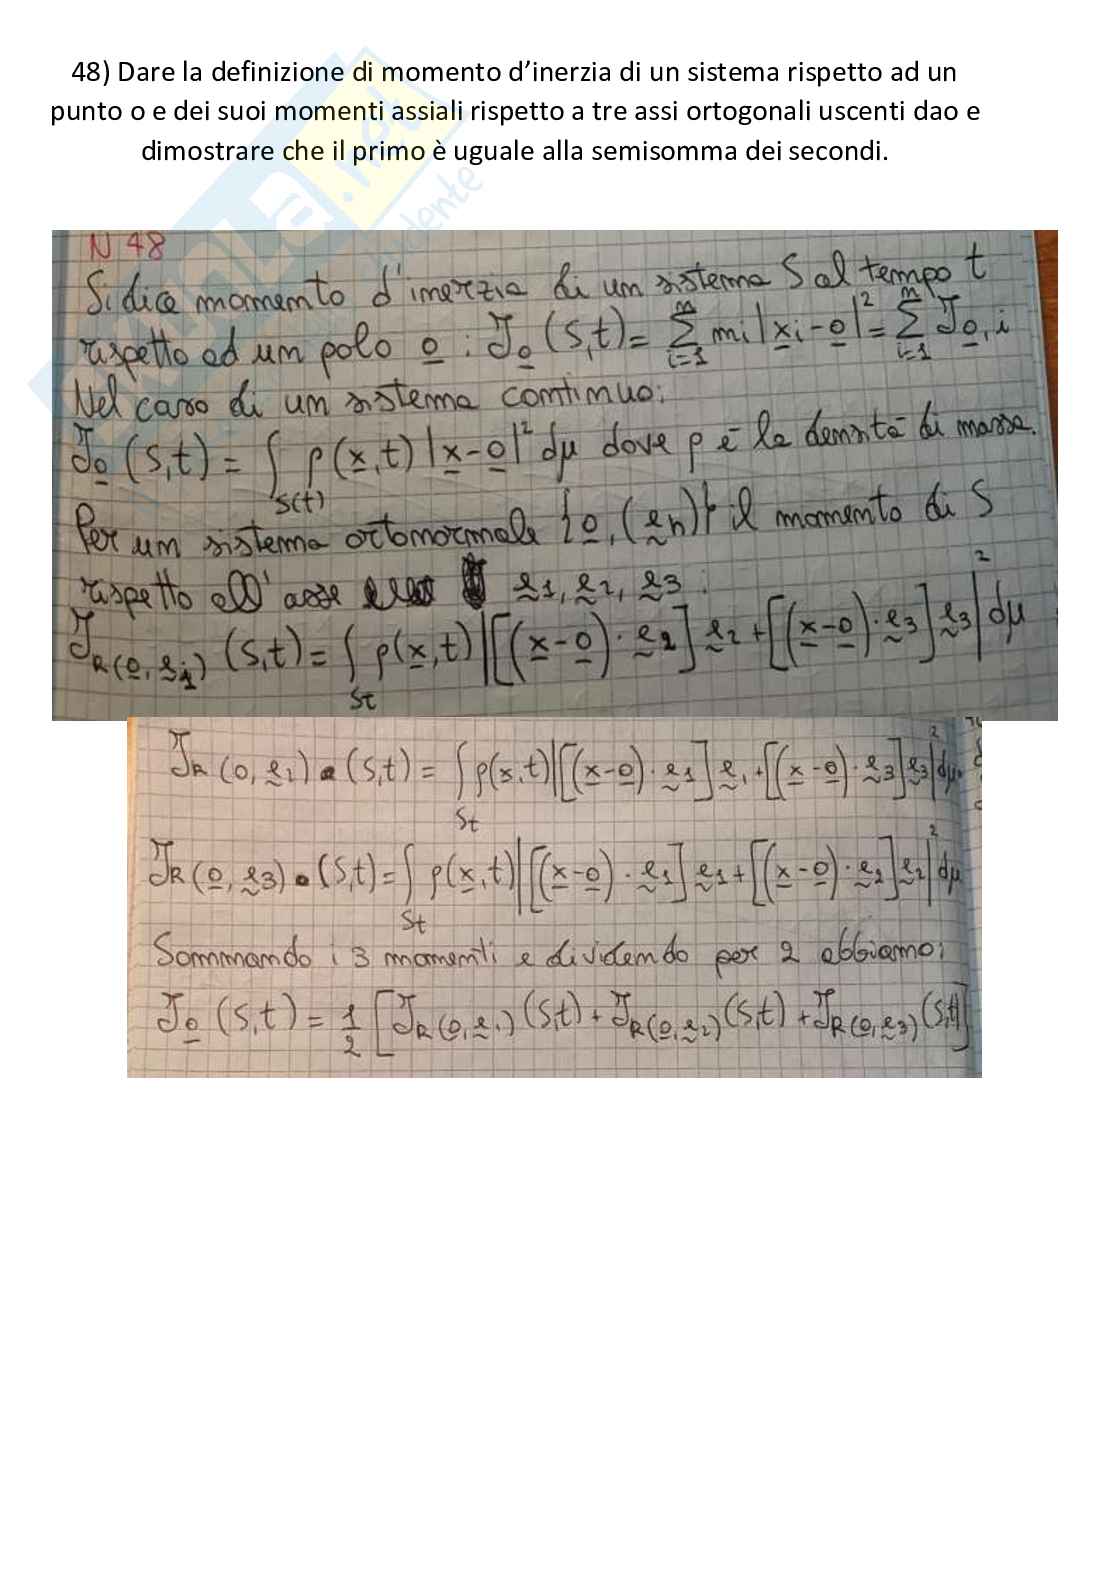 48) Dare la definizione di momento d’inerzia di un sistema rispetto ad un
punto o e dei suoi momenti assiali rispetto a tre assi ortogonali uscenti dao e
dimostrare che il primo è uguale alla semisomma dei secondi.
N 48
Si dice momento d'inerzia di un sistema S al tempo t
rispetto ad un polo o : J_o (S,t) = Σ_{i=1}^{n} mi |xi - o|² = Σ_{i=1}^{n} J_{o,i}
Nel caso di un sistema continuo:
J_o (S,t) = ∫_{S(t)} ρ(x,t) |x-o|² dμ dove ρ è la densità di massa.
Per un sistema ortonormale {o, (e_h)} il momento di S
rispetto all'asse e1, e2, e3 :
J_{R(o,e1)} (S,t) = ∫_{St} ρ(x,t) |[(x-o)·e2] e2 + [(x-o)·e3] e3|² dμ
J_{R(o,e2)} (S,t) = ∫_{St} ρ(x,t) |[(x-o)·e1] e1 + [(x-o)·e3] e3|² dμ
J_{R(o,e3)} (S,t) = ∫_{St} ρ(x,t) |[(x-o)·e1] e1 + [(x-o)·e2] e2|² dμ
Sommando i 3 momenti e dividendo per 2 abbiamo:
J_o (S,t) = 1/2 [J_{R(o,e1)} (S,t) + J_{R(o,e2)} (S,t) + J_{R(o,e3)} (S,t)]